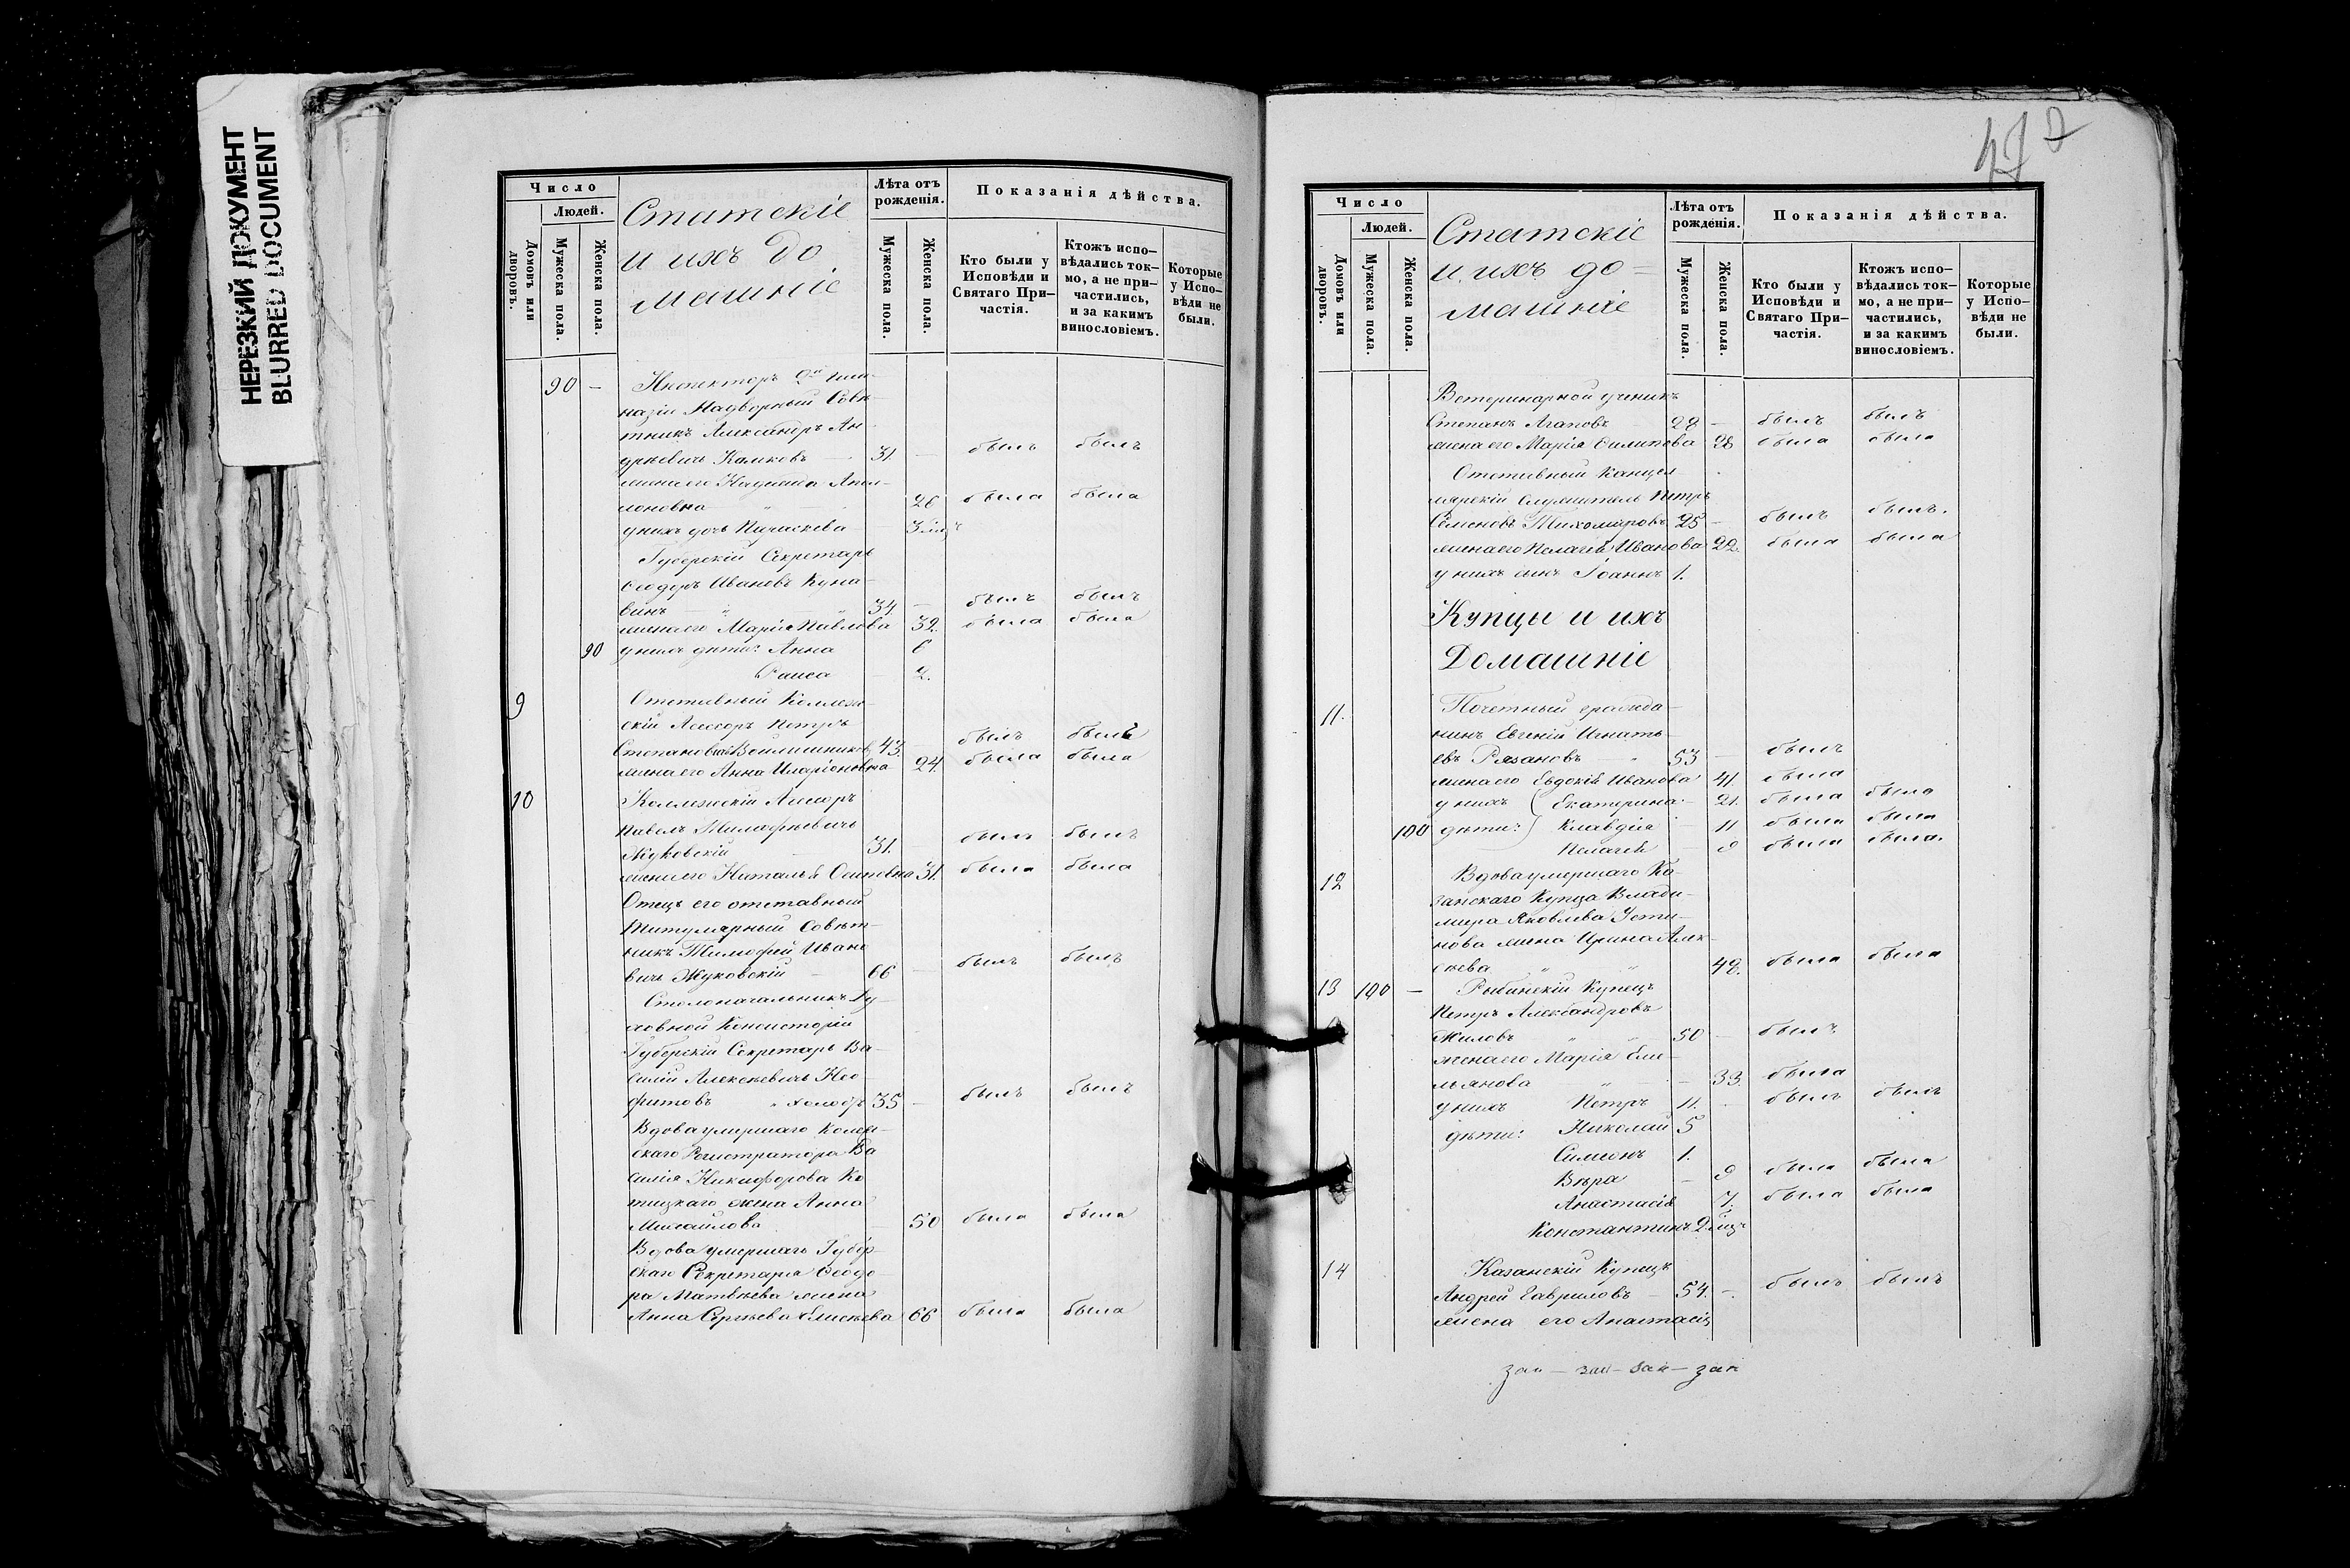 НЕРЕЗКИЙ ДОКУМЕНТ
BLURRED DOCUMENT
Число
Людей.
Домовъ или дворовъ.
Мужеска пола.
Женска пола.
Статскіе
и ихъ до
машніе
Лѣта отъ рожденія.
Мужеска пола.
Женска пола.
Показанія дѣйства.
Кто были у Исповѣди и Святаго При-частія.
Ктожъ испо-вѣдались ток-мо, а не при-частились, и за какимъ винословіемъ.
Которые у Испо-вѣди не были.
90 — Инспекторъ 2й гим-
назіи Надворный Совѣ-
тникъ Александръ Ан-
дреевичь 31. — былъ былъ
жена его
26 была была
у нихъ дочь 3 мѣц
Губерскій Секретарь
Ѳеодоръ Ивановъ Куна-
винъ 34. — былъ былъ
жена его Марія Павлова 32. была была
90 у нихъ дѣти: Анна 6
Раиса 2.
9 Отставный Коллеж-
скій Ассесоръ Петръ
Степановичь 43. былъ былъ
жена его Анна Иларіоновна 24. была была
10 Коллежскій Ассесоръ
Павелъ Тимофѣевичь
Жуковскій 31. былъ былъ
жена его Наталья Осиповна 31. была была
Отецъ его отставный
Титулярный Совѣт-
никъ Тимофей Ивано
вичь Жуковскій — 66 — былъ былъ
Столоначальникъ Ду-
ховной Консисторіи
Губерскій Секретарь Ва-
силій Алексѣевичь Нео
фитовъ " холостъ 35 — былъ былъ
Вдова умершаго Колеж-
скаго Регистратора Ва
силія Никифорова Ко
тицкаго жена Анна
Михайлова 50 была была
Вдова умершаго Губер-
скаго Секретаря Ѳеодо
ра Матвѣева жена
Анна Сергѣева Елисѣева 66 была была
47
Число
Людей.
Домовъ или дворовъ.
Мужеска пола.
Женска пола.
Статскіе
и ихъ до=
машніе
Лѣта отъ рожденія.
Мужеска пола.
Женска пола.
Показанія дѣйства.
Кто были у Исповѣди и Святаго При-частія.
Ктожъ испо-вѣдались ток-мо, а не при-частились, и за какимъ винословіемъ.
Которые у Испо-вѣди не были.
Ветеринарной ученикъ
Степанъ Агаповъ 28 — былъ былъ
жена его Марія Филипова 28 была была
Отставный Канцел-
лярскій служитель Петръ
Семеновъ Тихомировъ 25 — былъ былъ.
жена его Пелагея Иванова 22. была была
у нихъ сынъ Іоаннъ 1.
Купцы и ихъ
Домашніе
11. Почетный гражда-
нинъ Евгеній Игнать-
евъ Рязановъ " 53 — былъ
жена его Евдокія Иванова 41. была
у нихъ Екатерина 21. была была
100 дѣти: Клавдія — 11 была была
Пелагея — 9 была была.
12 Вдова умершаго Ка-
занскаго Купца Влади-
мира Яковлева Усти-
нова жена Ирина Алек-
сѣева " " 48. была была
13 100 — Рыбинскій Купецъ
Петръ Александровъ
Жиловъ " " 50 — былъ
жена его Марія Еме-
льянова " — 33. была
у нихъ Петръ 11. былъ былъ
дѣти: Николай 5
Симеонъ 1.
Вѣра — 9 была была
Анастасія 7. была была
Константинъ 2 мцъ
14 Казанскій Купецъ
Андрей Гавриловъ — 54. —. былъ былъ
жена его Анастасія